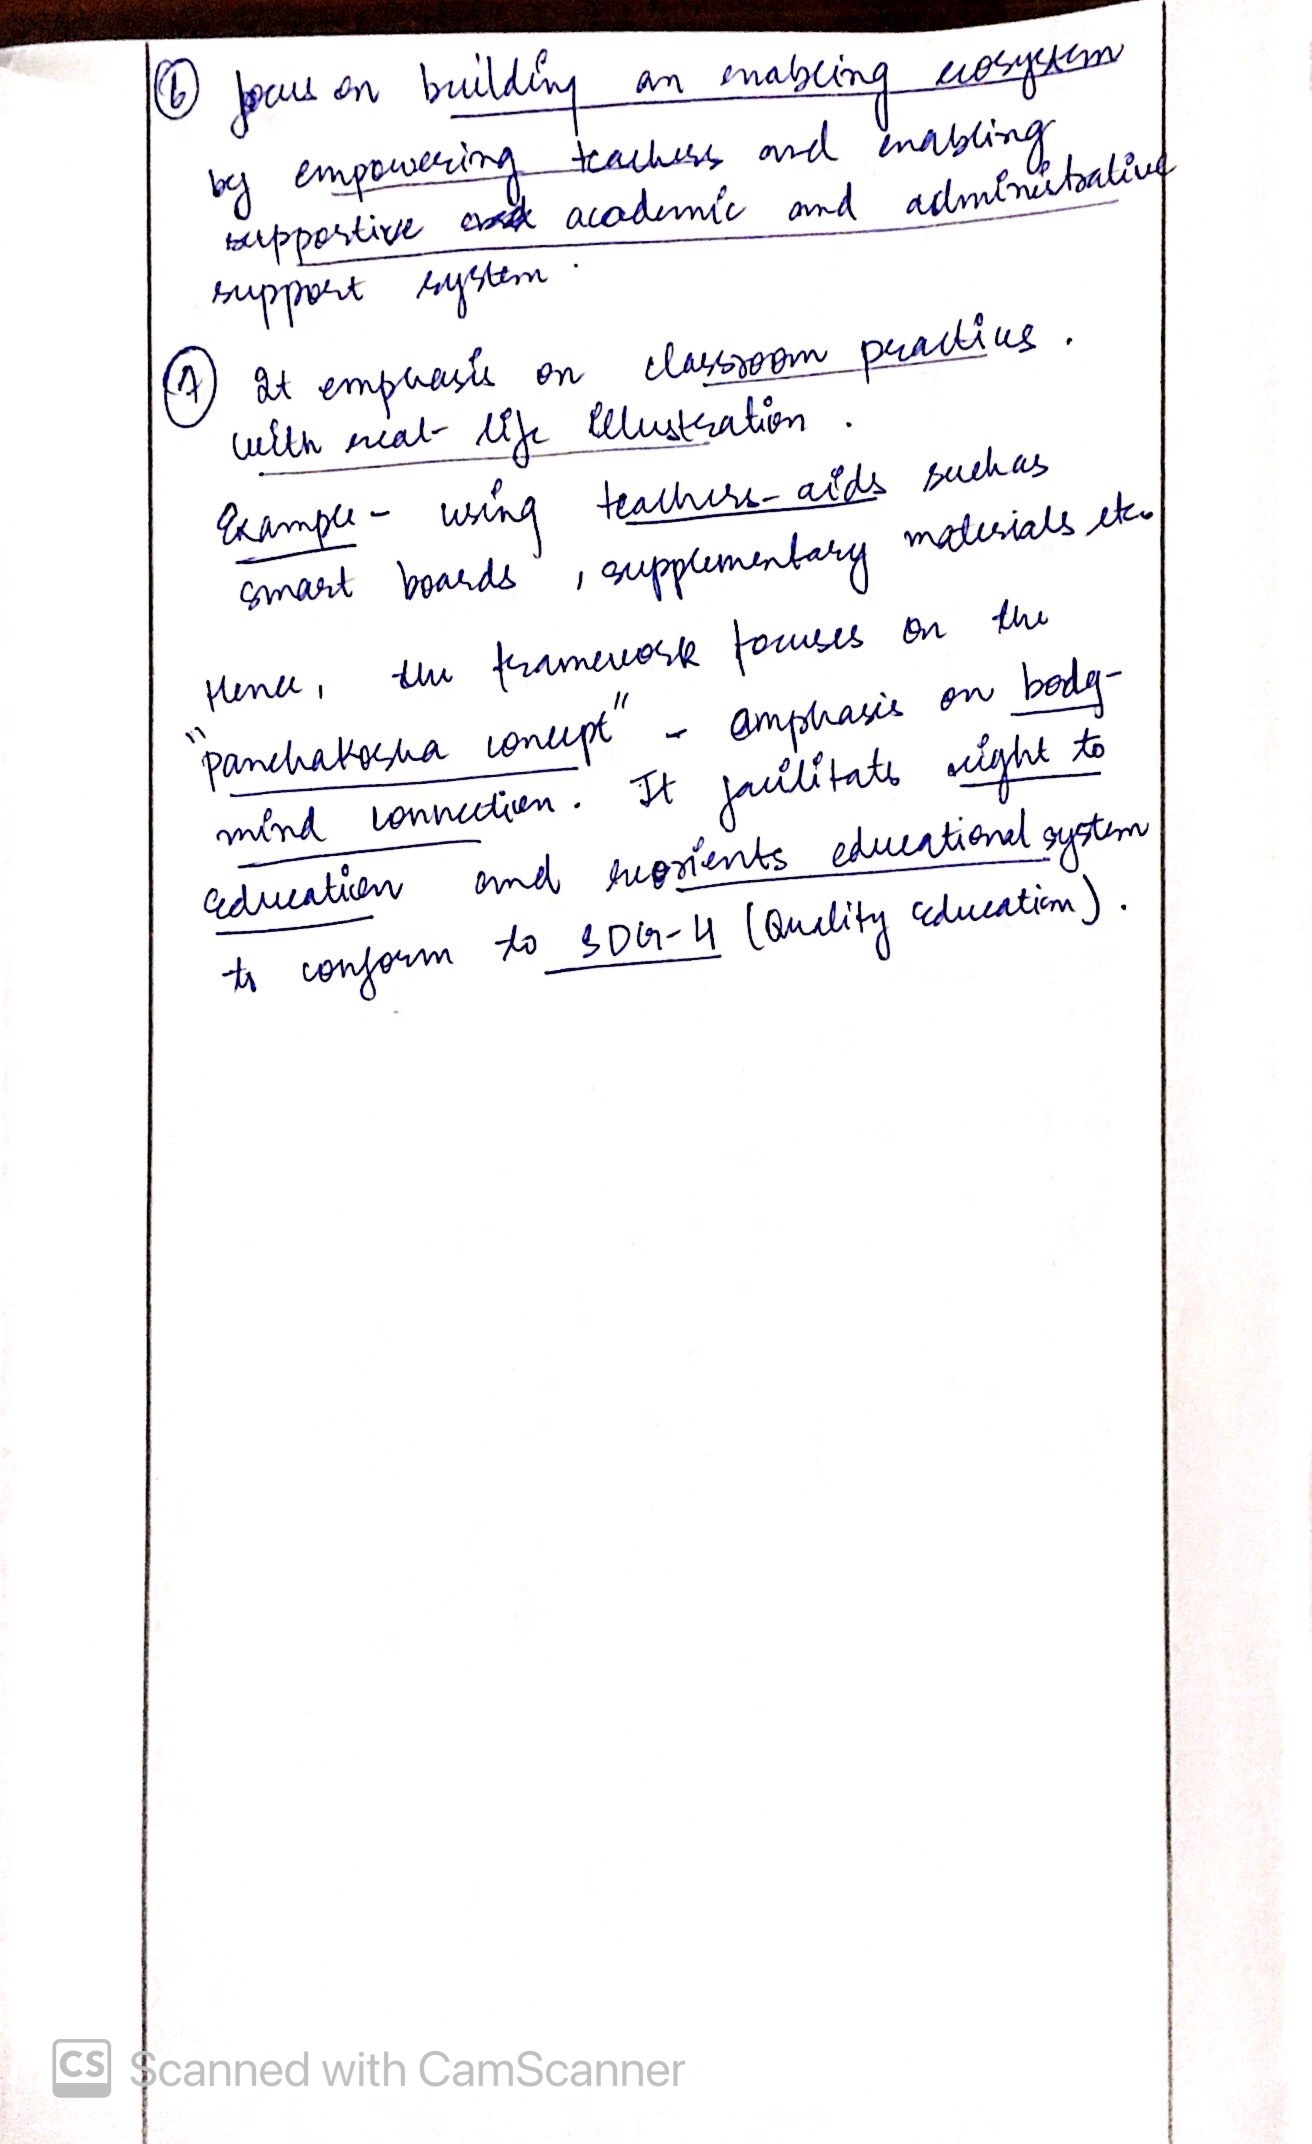 ⑥ focus on building an enabling ecosystem
by empowering teachers and enabling
supportive academic and administrative
support system.
⑦ It emphasis on classroom practices.
with real-life illustration.
Example- using teachers-aids such as
smart boards, supplementary materials etc.
Hence, the framework focuses on the
"panchakosha concept" - emphasis on body-
mind connection. It facilitats right to
education and reorients educational system
to conform to SDG-4 (Quality education).
CS Scanned with CamScanner